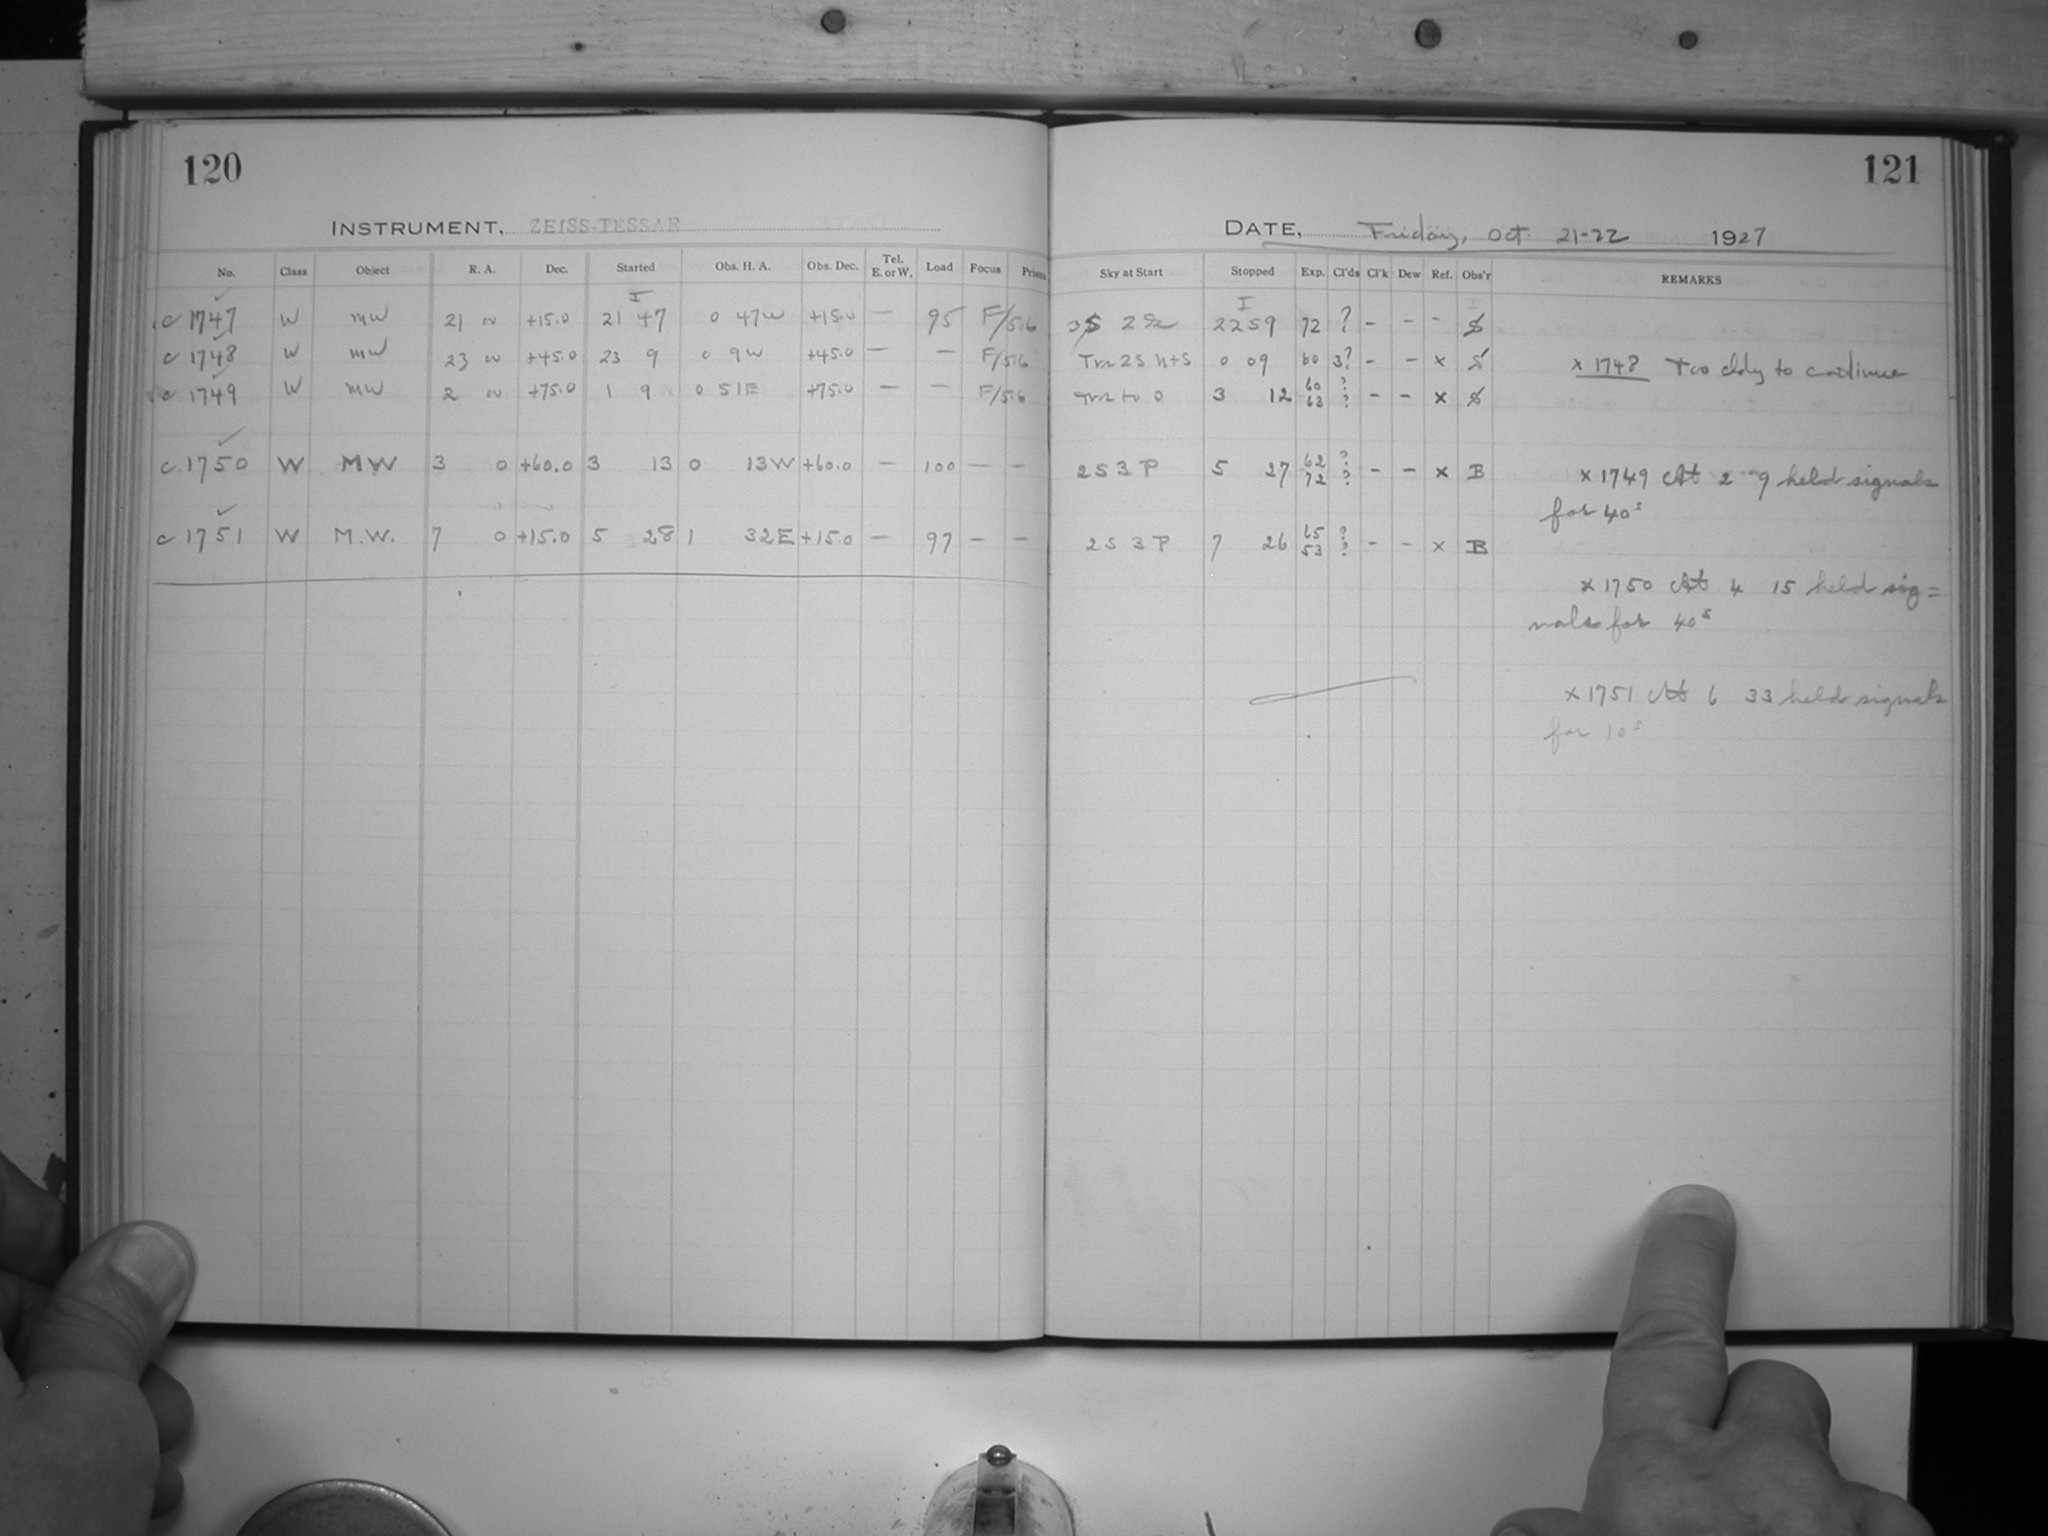 120
121
INSTRUMENT, ZEISS-TESSAR
DATE, Friday, Oct. 21-22 1927
No. Class Object R. A. Dec. Started Obs. H. A. Obs. Dec. Tel. E. or W. Load Focus Prism Sky at Start Stopped Exp. Cl'ds Cl'k Dew Ref. Obs'r REMARKS
I I
c 1747 W MW 21 0 +15.0 21 47 0 47W +15.0 — 95 F/5.6 2259 72 ? - - - S
c 1748 W MW 23 0 +45.0 23 9 0 9W +45.0 — — F/5.6 2S 0 09 60 3? - - x S x 1748 Too cldy to continue
c 1749 W MW 2 0 +75.0 1 9 0 51E +75.0 — — F/5.6 3 12 60 63 ? ? - - x S
c 1750 W MW 3 0 +60.0 3 13 0 13W +60.0 — 100 — — 2S 3P 5 27 62 72 ? ? - - x B x 1749 At 2 9 held signals
for 40s
c 1751 W M.W. 7 0 +15.0 5 28 1 32E +15.0 — 97 — — 2S 3P 7 26 65 53 ? ? - - x B
x 1750 At 4 15 held sig=
nals for 40s
x 1751 At 6 33 held signals
for 10s